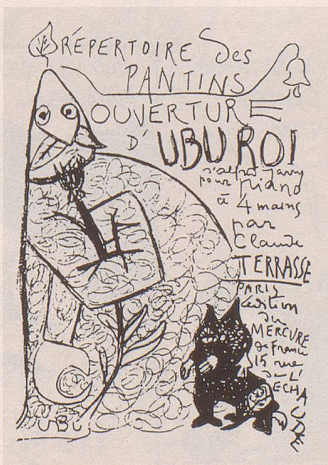 RÉPERTOIRE DES
PANTINS
OUVERTURE
D'UBU ROI
d'Alfred Jarry
pour piano
à 4 mains
par
Claude
TERRASSE
PARIS
édition
du
MERCURE
de France
15 rue
de L'
ECHAUDÉ
UBU